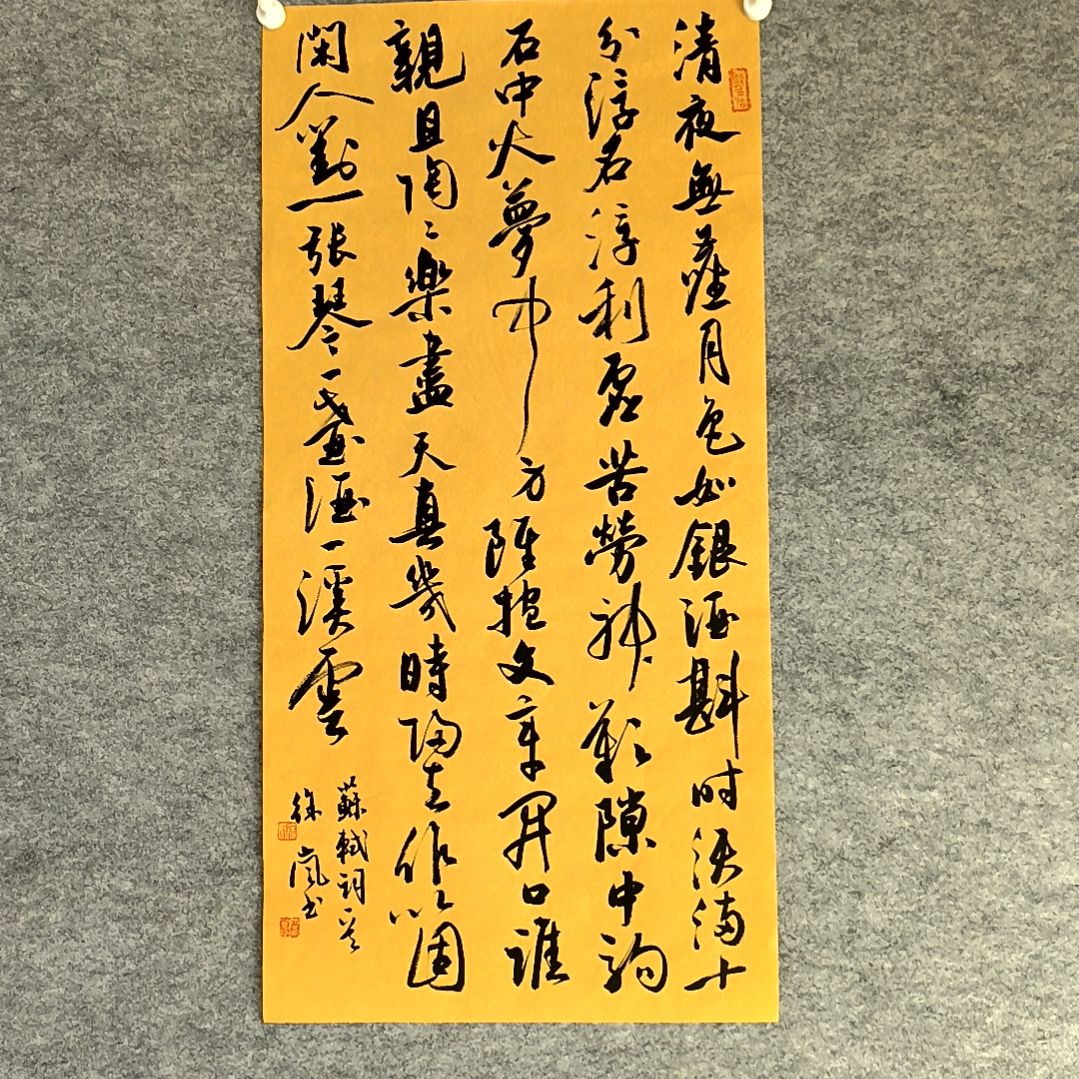 清夜無塵月色如銀酒斟时須滿十
分浮名浮利虛苦勞神歎隙中駒
石中火夢中身雖抱文章開口誰
親且陶〻樂盡天真幾時歸去作箇
閑人對一張琴一壺酒一溪雲
蘇軾詞一首
徐嵐书